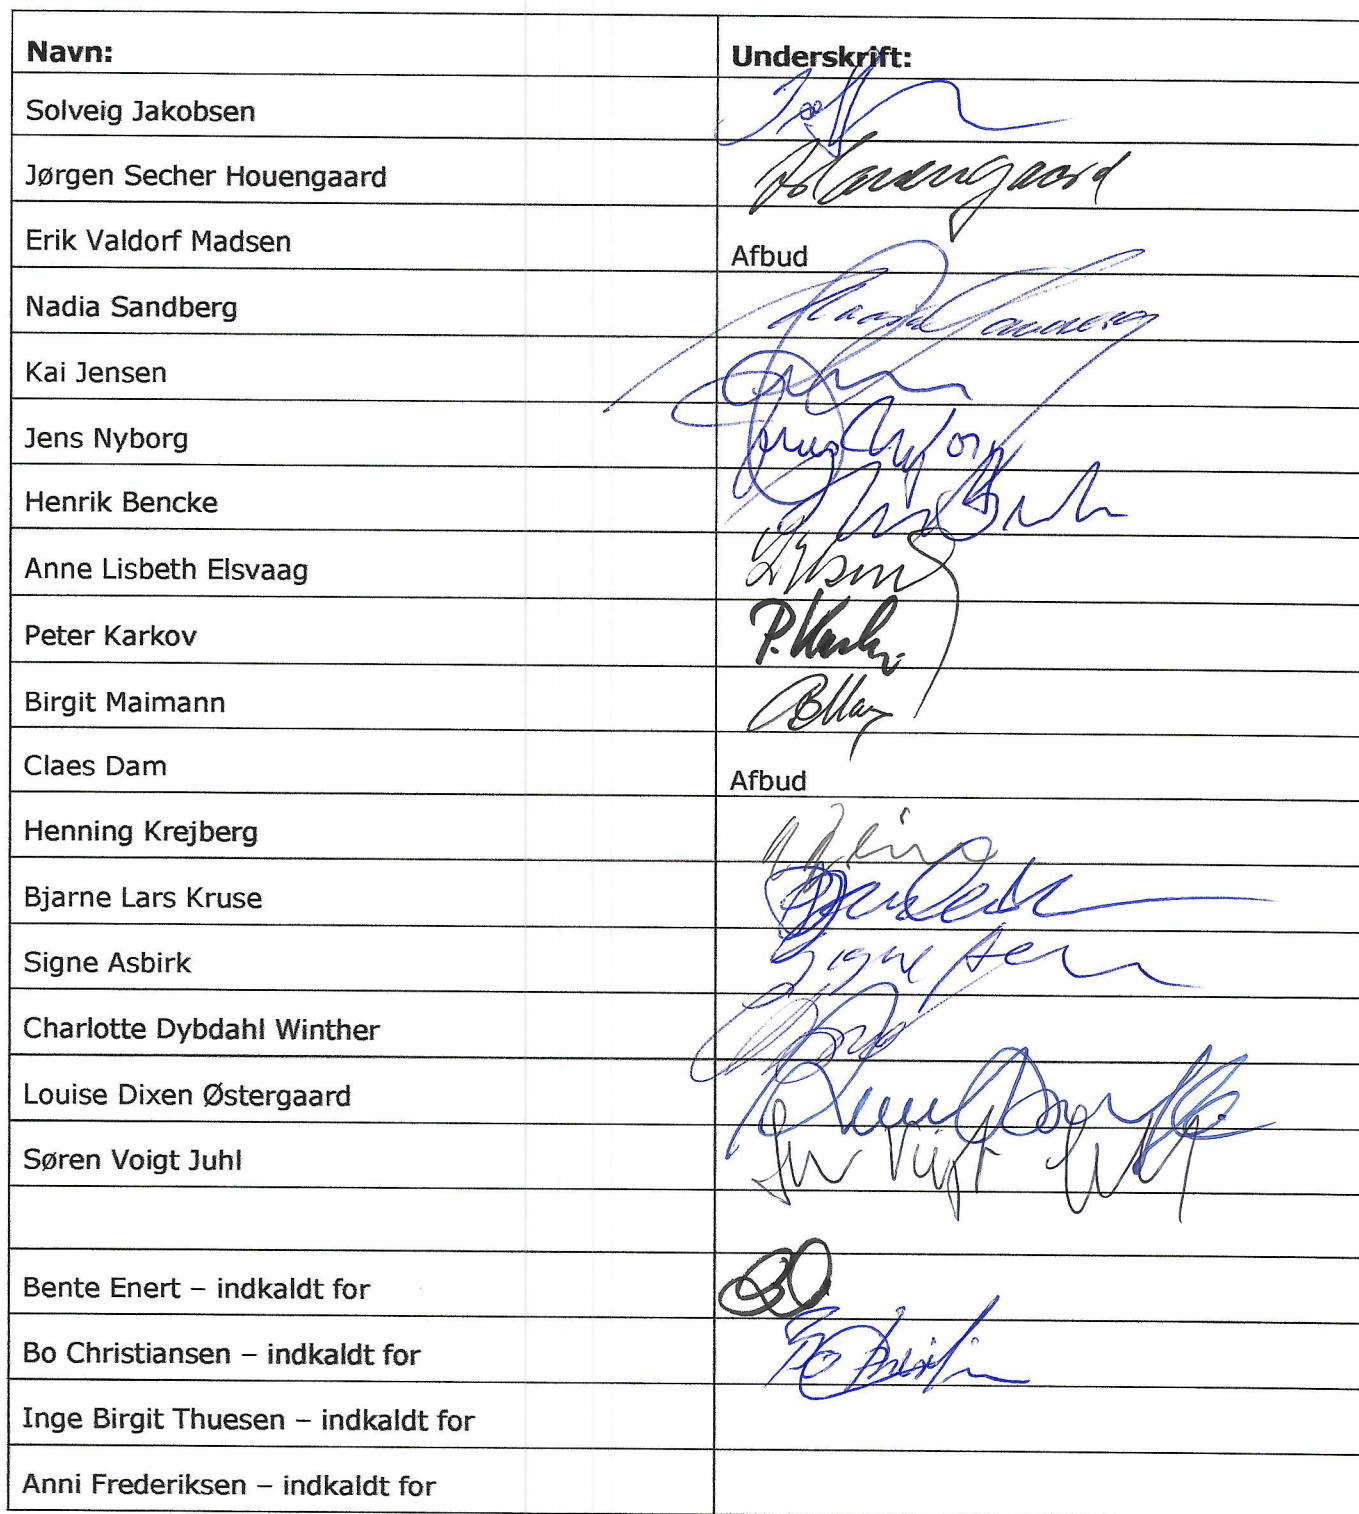 Navn: Underskrift:
Solveig Jakobsen
Jørgen Secher Houengaard Houengaard
Erik Valdorf Madsen Afbud
Nadia Sandberg
Kai Jensen
Jens Nyborg Jens Nyborg
Henrik Bencke
Anne Lisbeth Elsvaag
Peter Karkov
Birgit Maimann
Claes Dam Afbud
Henning Krejberg
Bjarne Lars Kruse
Signe Asbirk Signe
Charlotte Dybdahl Winther
Louise Dixen Østergaard
Søren Voigt Juhl Voigt
Bente Enert – indkaldt for
Bo Christiansen – indkaldt for Bo
Inge Birgit Thuesen – indkaldt for
Anni Frederiksen – indkaldt for